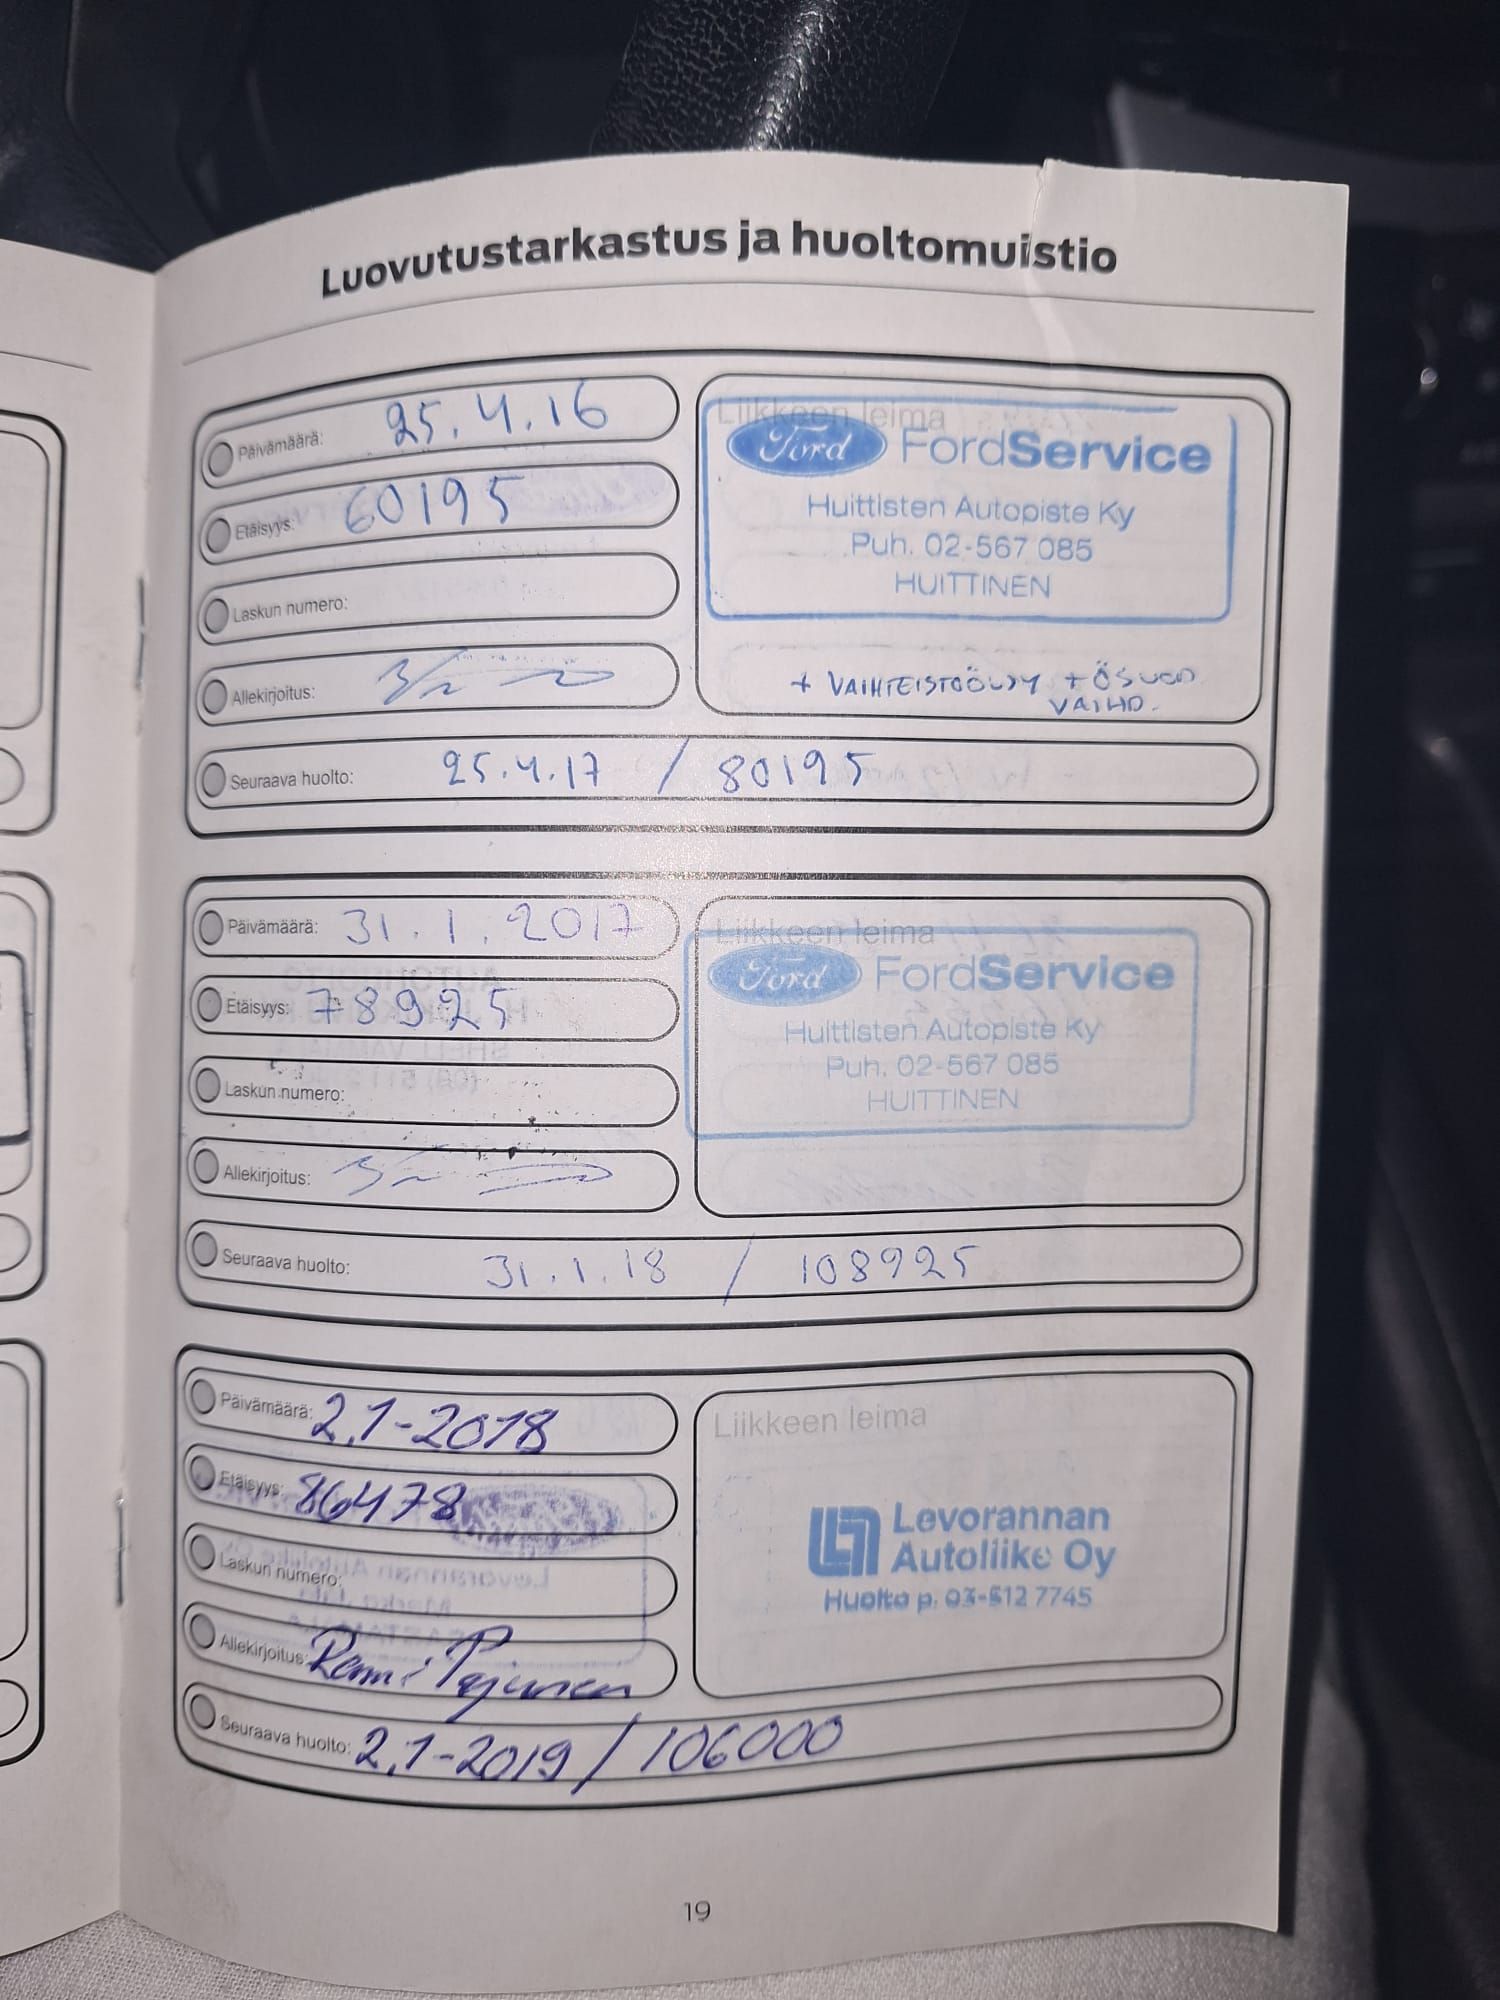 Luovutustarkastus ja huoltomuistio
Päivämäärä: 25.4.16
Etäisyys: 60195
Laskun numero:
Allekirjoitus:
Liikkeen leima
Ford FordService
Huittisten Autopiste Ky
Puh. 02-567 085
HUITTINEN
+ VAIHTEISTOÖLJY + ÖSUOD
VAIHD.
Seuraava huolto: 25.4.17 / 80195
Päivämäärä: 31.1.2017
Etäisyys: 78925
Laskun numero:
Allekirjoitus:
Liikkeen leima
Ford FordService
Huittisten Autopiste Ky
Puh. 02-567 085
HUITTINEN
Seuraava huolto: 31.1.18 / 108925
Päivämäärä: 2.1-2018
Etäisyys: 86478
Laskun numero:
Allekirjoitus:
Liikkeen leima
Levorannan
Autoliike Oy
Huolto p. 03-512 7745
Seuraava huolto: 2.1-2019 / 106000
19